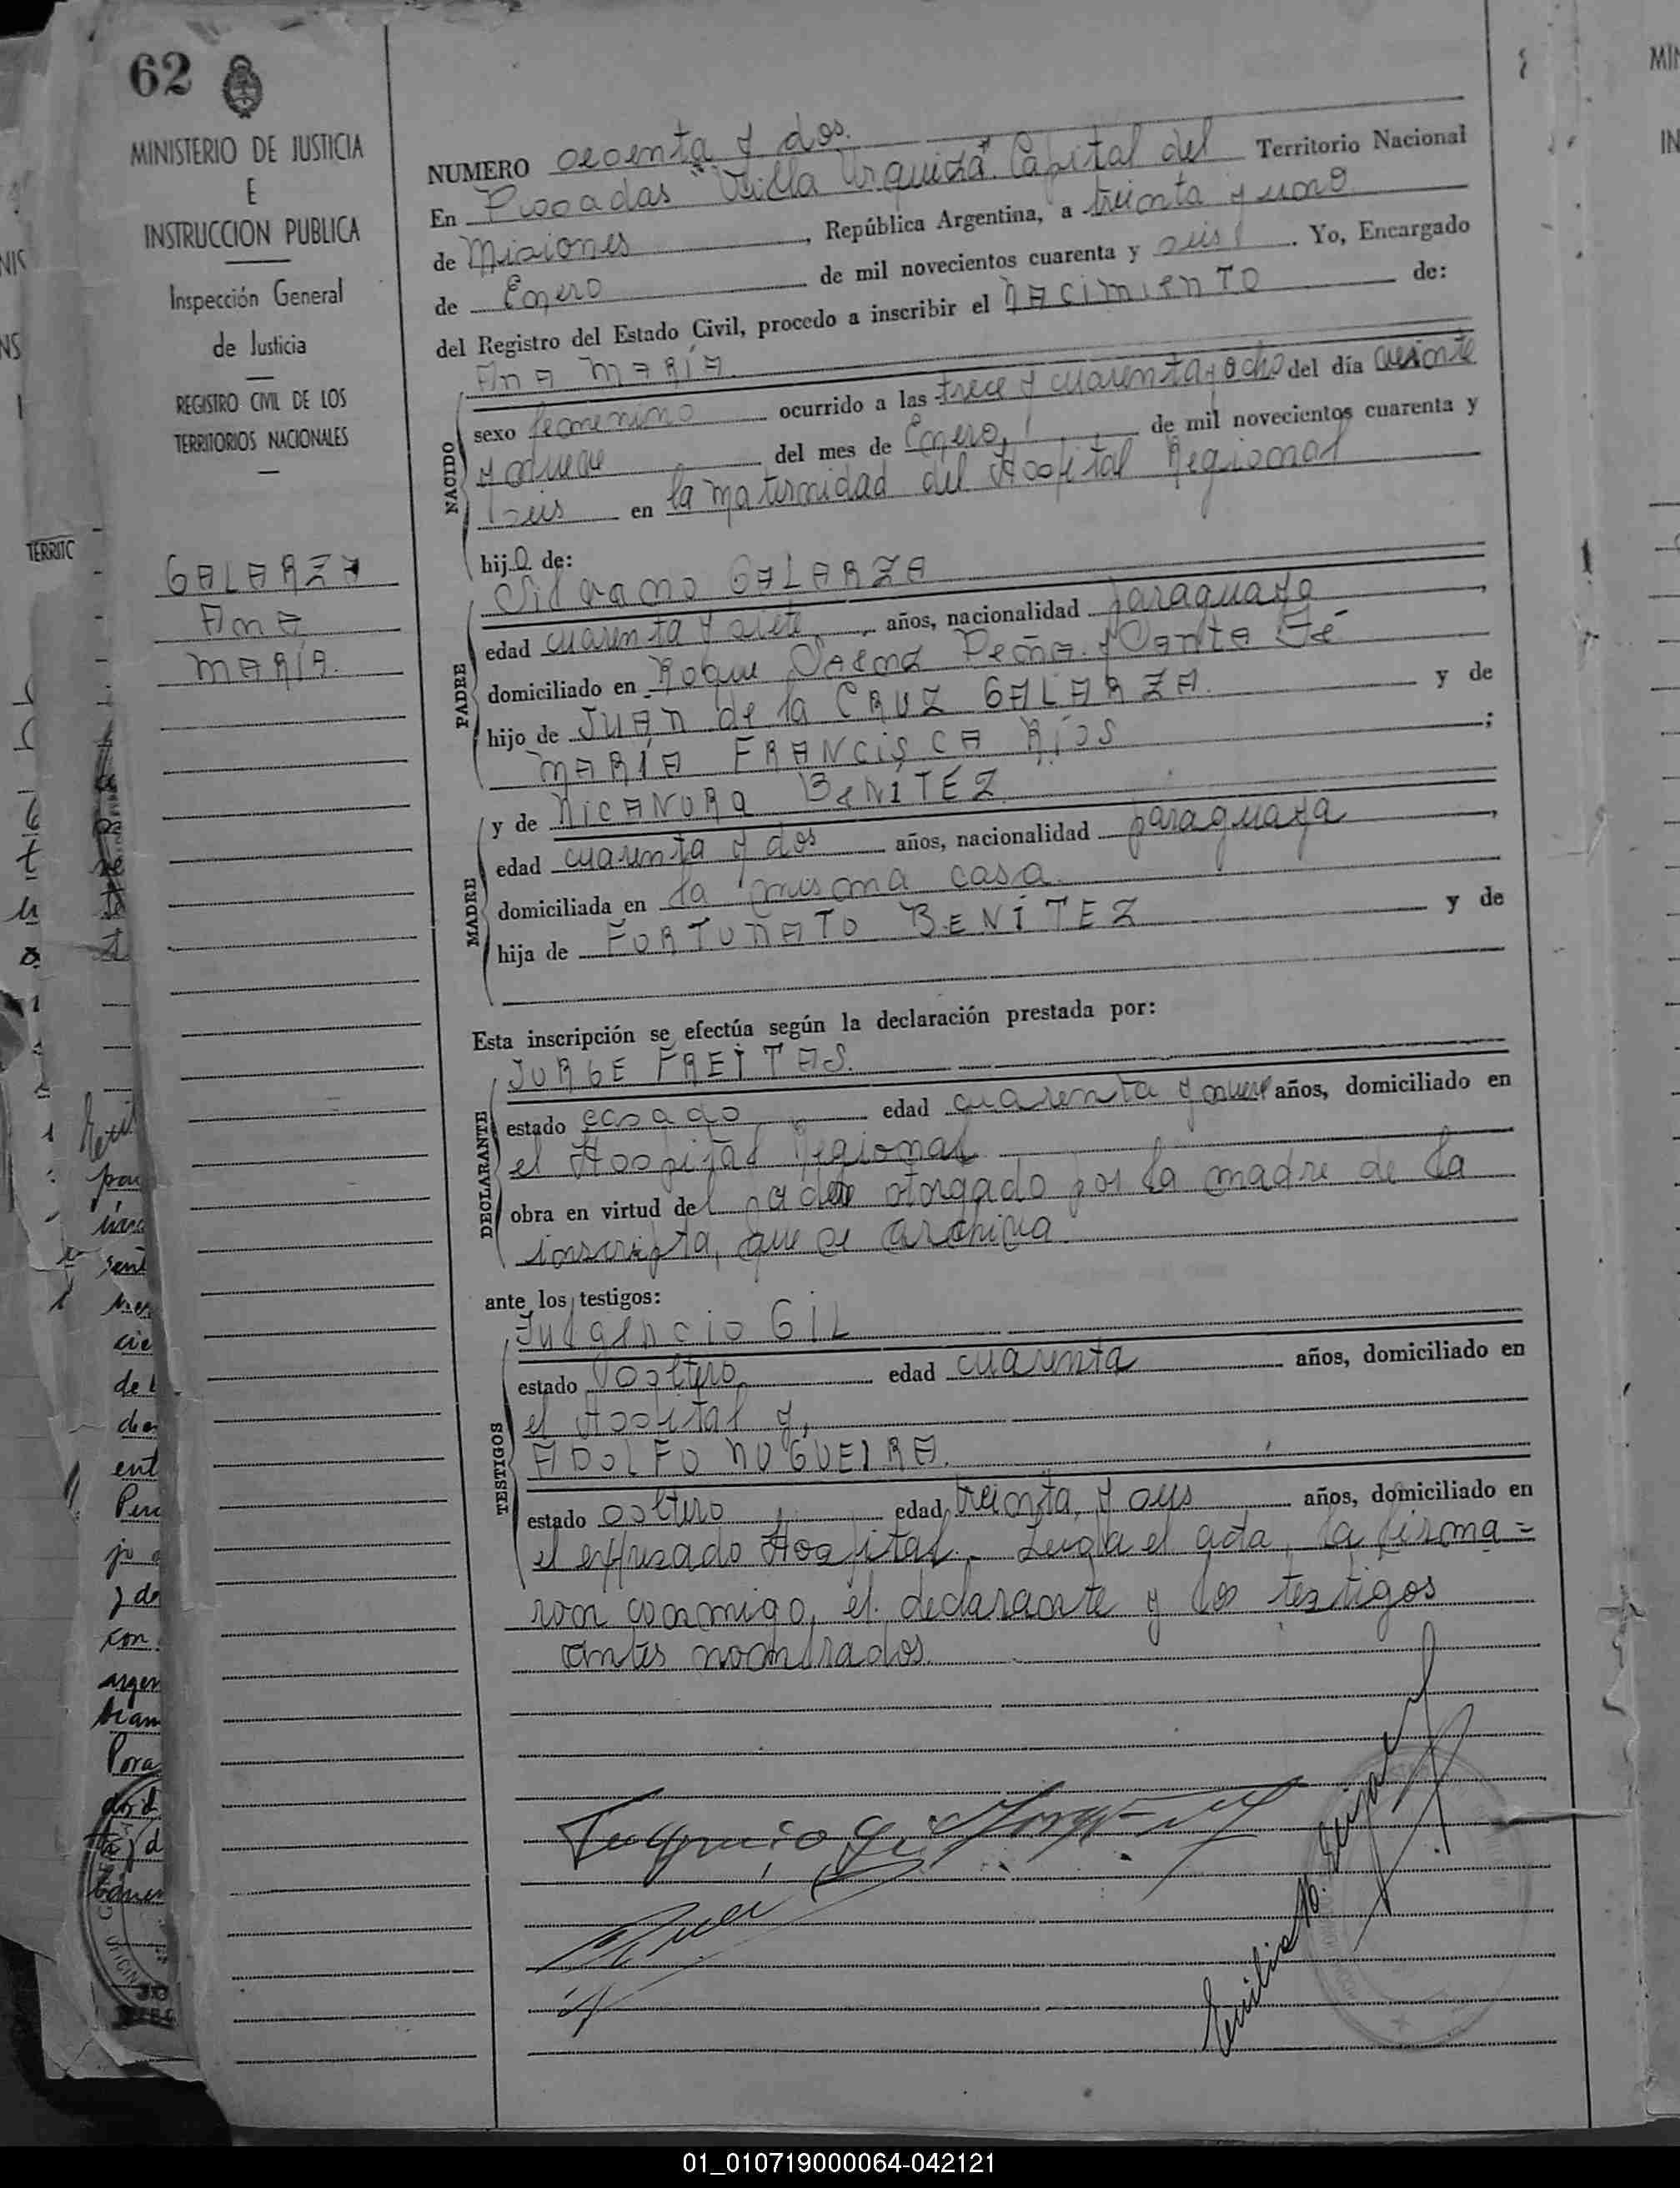 62
MINISTERIO DE JUSTICIA
E
INSTRUCCION PUBLICA
Inspección General
de Justicia
REGISTRO CIVIL DE LOS
TERRITORIOS NACIONALES
GALARZA
Ana
MARÍA.
NUMERO sesenta y dos.
En Posadas "Villa Urquiza" Capital del Territorio Nacional
de Misiones, República Argentina, a treinta y uno
de Enero de mil novecientos cuarenta y seis. Yo, Encargado
del Registro del Estado Civil, procedo a inscribir el nacimiento de:
Ana MARÍA.
NACIDO
sexo femenino ocurrido a las trece y cuarenta y ocho del día veinte
y nueve del mes de Enero, de mil novecientos cuarenta y
seis en la maternidad del Hospital Regional
hija de:
PADRE
Silvano GALARZA
edad cuarenta y siete, años, nacionalidad paraguaya,
domiciliado en Roque Saenz Peña y Santa Fé
hijo de Juan de la CRUZ GALARZA. y de
MARÍA FRANCISCA RÍOS;
MADRE
y de NICANORA BENÍTEZ
edad cuarenta y dos años, nacionalidad paraguaya,
domiciliada en la misma casa.
hija de FORTUNATO BENÍTEZ y de
Esta inscripción se efectúa según la declaración prestada por:
DECLARANTE
JORGE FREITAS.
estado casado edad cuarenta y nueve años, domiciliado en
el Hospital Regional
obra en virtud del otorgado por la madre de la
inscripta, que se archiva.
ante los testigos:
TESTIGOS
Fulgencio GIL
estado soltero edad cuarenta años, domiciliado en
el Hospital y,
ADOLFO NOGUEIRA.
estado soltero edad treinta y seis años, domiciliado en
el expresado Hospital. Leída el acta, la firma=
ron conmigo, el declarante y los testigos
antes nombrados.
01_010719000064-042121